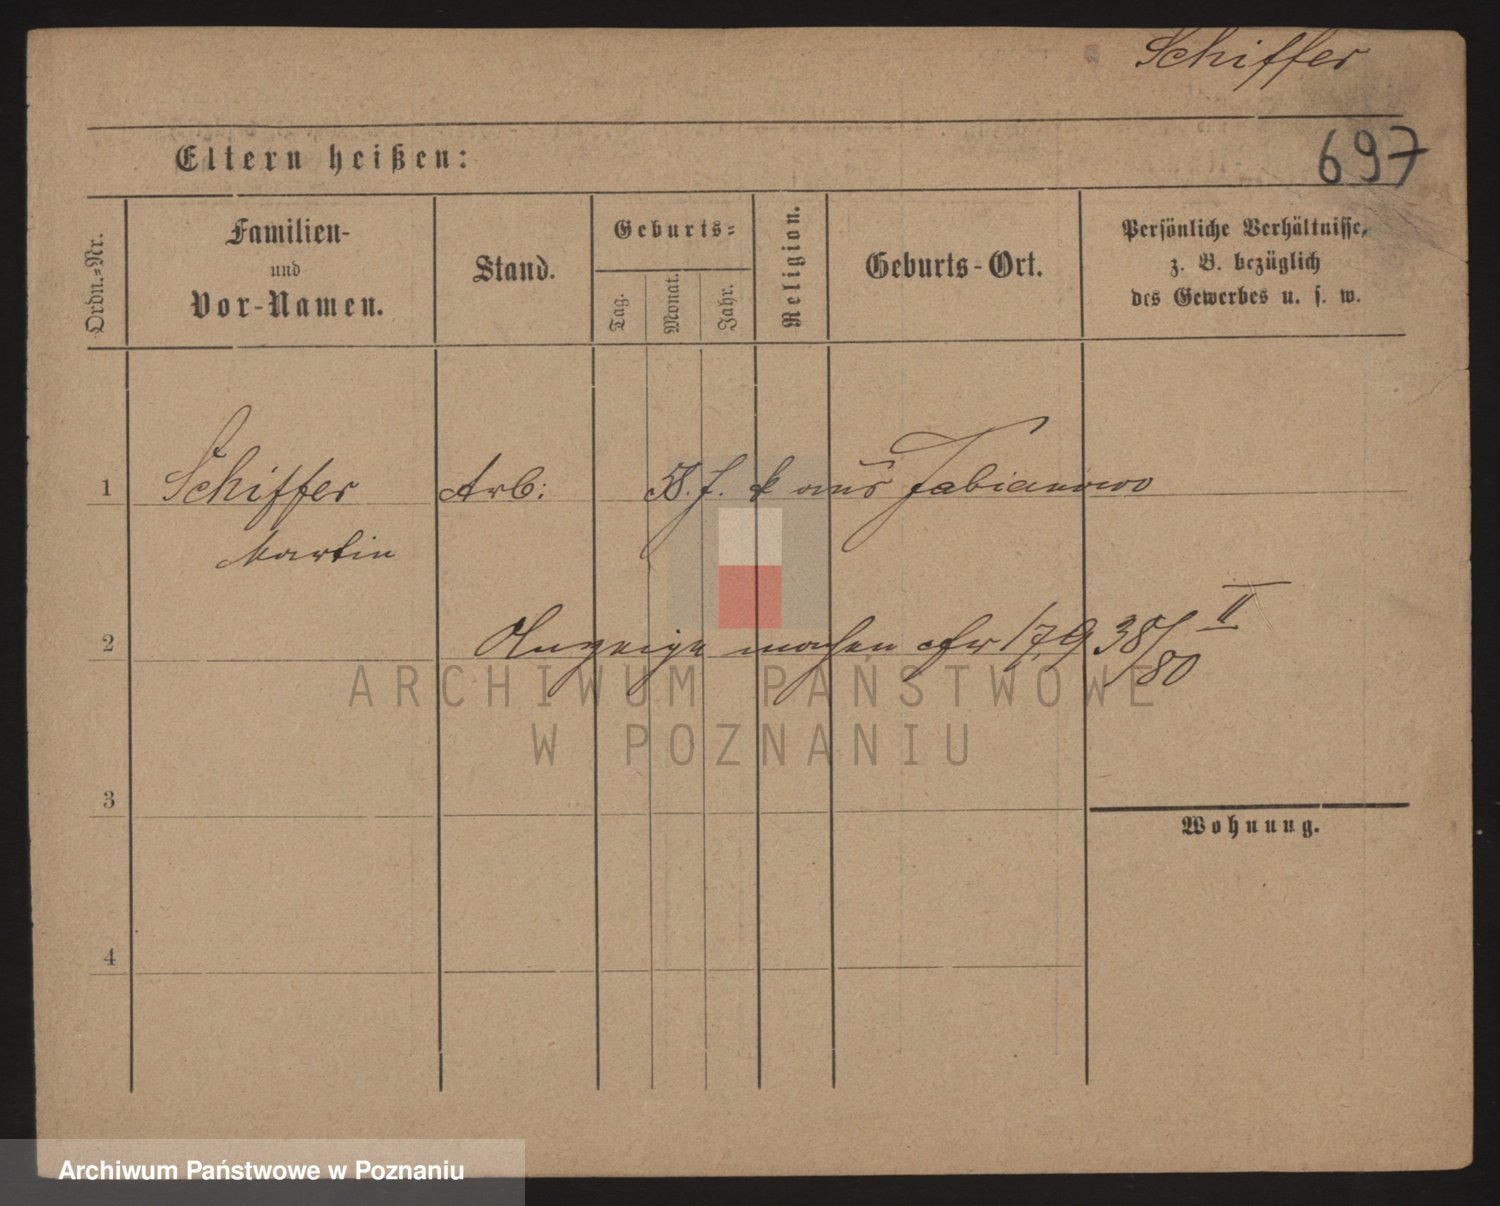 Schiffer
697
Eltern heißen:
Ordn.=Nr.
Familien-
und
Vor-Namen.
Stand.
Geburts=
Tag.
Monat.
Jahr.
Religion.
Geburts-Ort.
Persönliche Verhältnisse,
z. B. bezüglich
des Gewerbes u. s. w.
1 Schiffer Arb: 58. J. k aus Fabianowo
Martin
2 Anzeige machen cfr 17,9 38/80 II
ARCHIWUM PAŃSTWOWE
W POZNANIU
3
Wohnung.
4
Archiwum Państwowe w Poznaniu